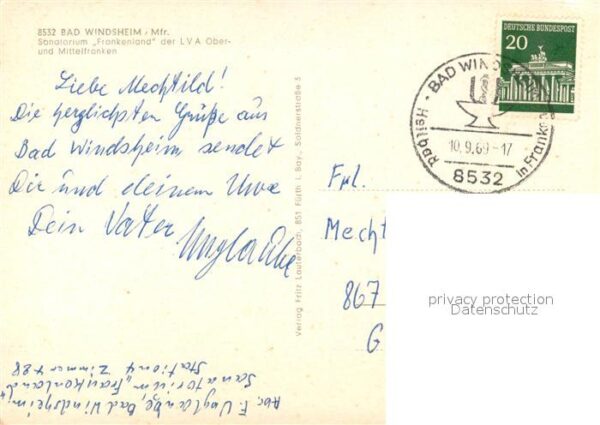 8532 BAD WINDSHEIM / Mfr.
Sanatorium „Frankenland" der LVA Ober-
und Mittelfranken
Liebe Mechtild!
Die herzlichsten Grüße aus
Bad Windsheim sendet
Dir und deinem Uwe
Dein Vater
Abs. F. Bad Windsheim
Sanatorium „Frankenland"
Station 4 Zimmer 428
Verlag Fritz Lauterbach, 851 Fürth i. Bay., Soldnerstraße 5
DEUTSCHE BUNDESPOST
20
BAD WINDS
Heilbad
in Franken
10.9.69-17
8532
Frl.
Mecht
867
G
privacy protection
Datenschutz